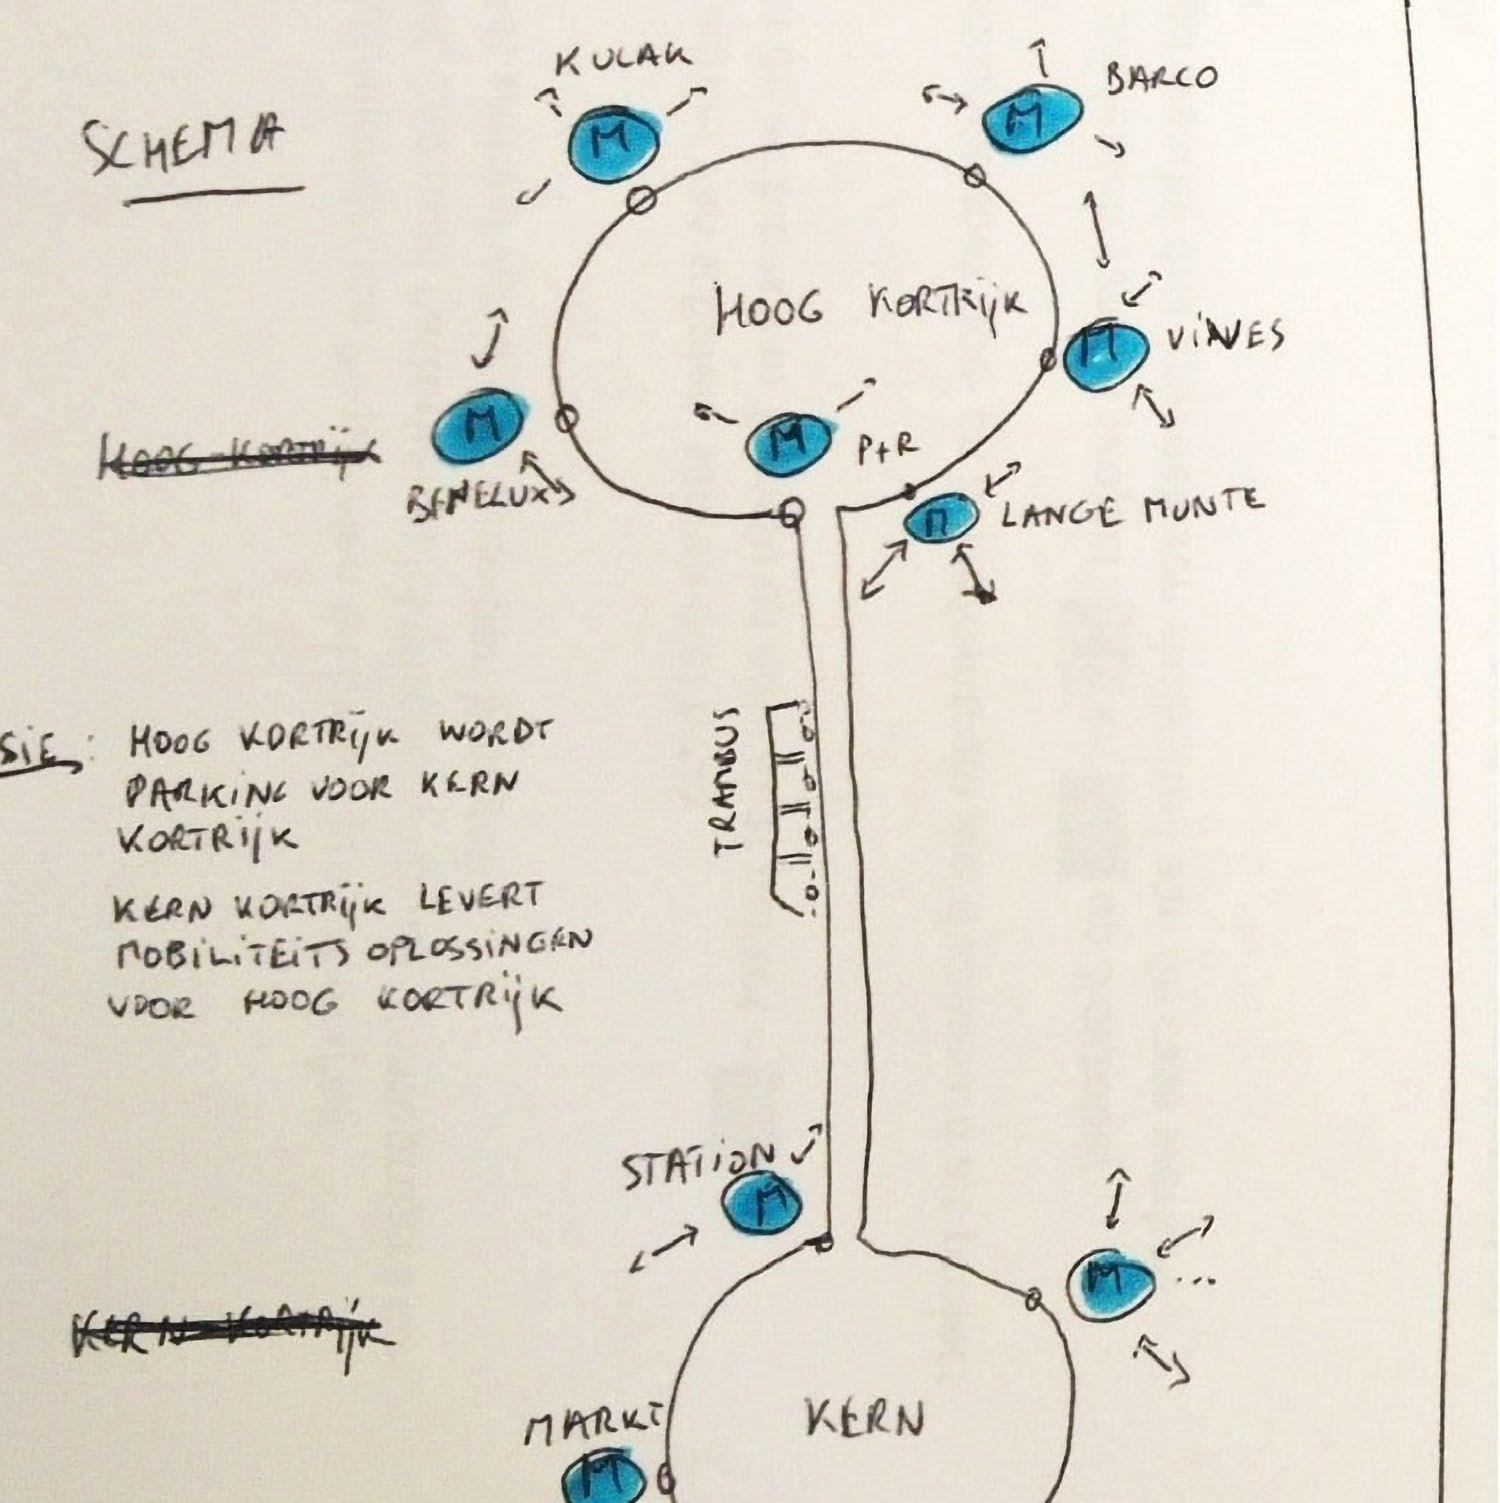 KULAK
BARCO
SCHEMA
M
M
HOOG KORTRIJK
M
VIVES
M
M
P+R
HOOG KORTRIJK
BENELUX
M
LANGE MUNTE
TRAMBUS
SIE: HOOG KORTRIJK WORDT
PARKING VOOR KERN
KORTRIJK
KERN KORTRIJK LEVERT
MOBILITEITS OPLOSSINGEN
VOOR HOOG KORTRIJK
STATION
M
M ...
KERN KORTRIJK
MARKT
KERN
M